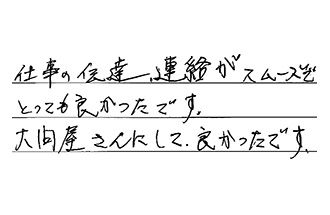 仕事の伝達、連絡がスムーズで
とっても良かったです。
大向屋さんにして、良かったです。